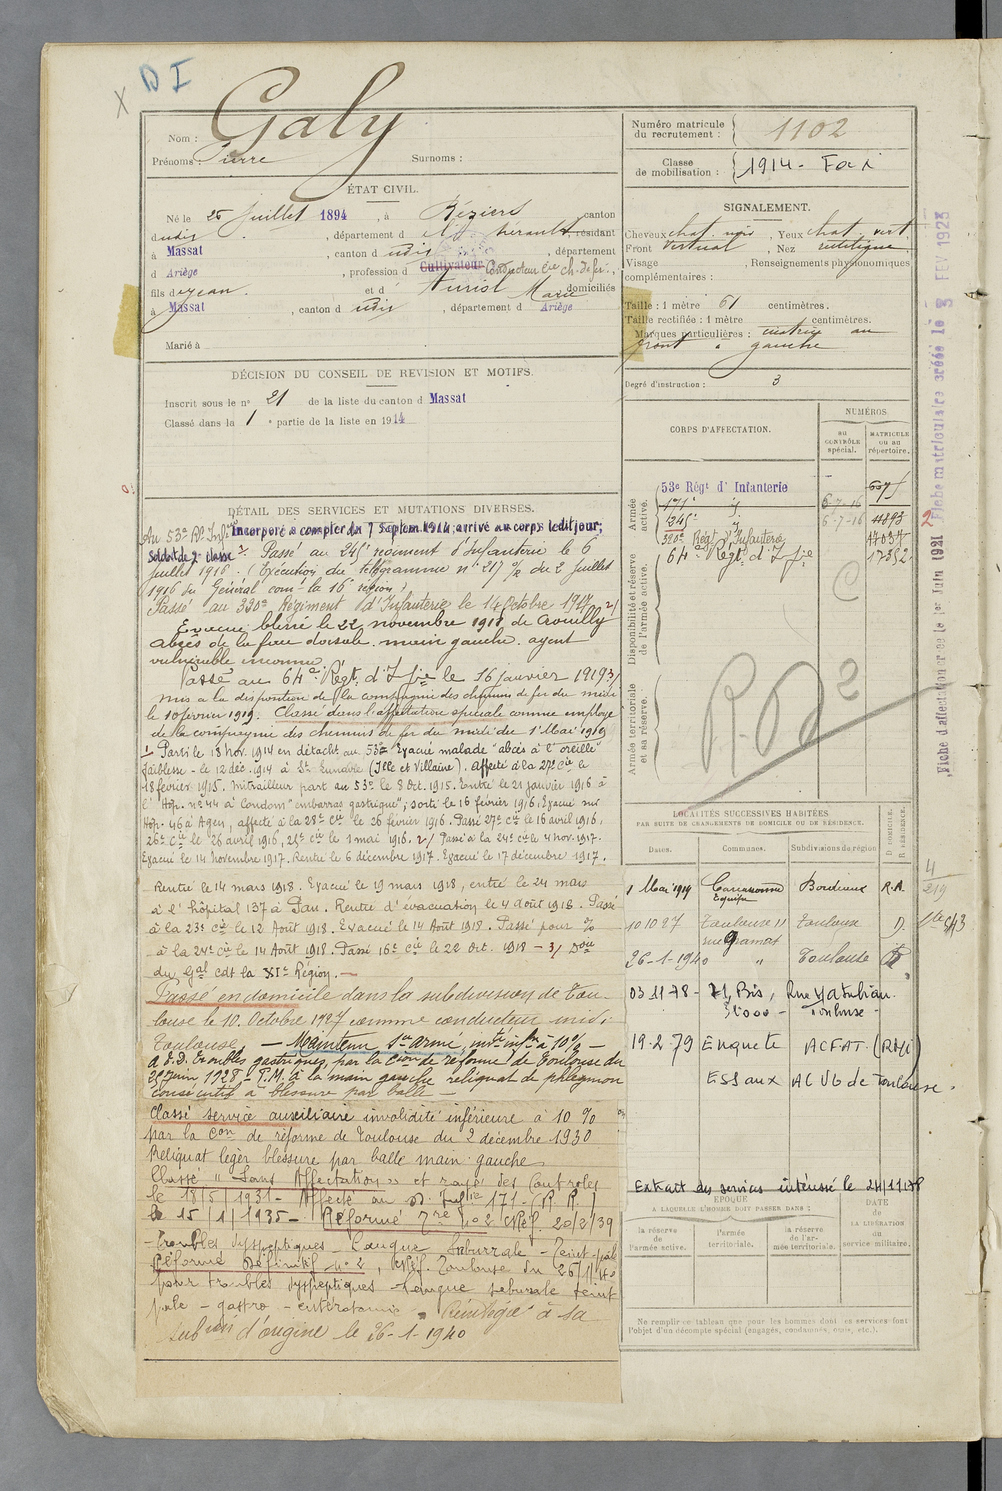 X D I
Nom : Galy
Prénoms : Pierre Surnoms :
Numéro matricule du recrutement : 1102
Classe de mobilisation : 1914 - Foix
ÉTAT CIVIL.
Né le 26 Juillet 1894, à Béziers canton
dudit, département d Hérault, résidant
à Massat, canton d dudit, département
d Ariège, profession d Cultivateur Conducteur Cie ch. de fer.,
fils de Jean et d Auriol Marie domiciliés
à Massat, canton d dudit, département d Ariège
Marié à
SIGNALEMENT.
Cheveux chat. noir, Yeux chat. vert
Front vertical, Nez rectiligne
Visage , Renseignements physionomiques
complémentaires :
Taille : 1 mètre 61 centimètres.
Taille rectifiée : 1 mètre centimètres.
Marques particulières : cicatrice au
front à gauche
Degré d'instruction : 3
DÉCISION DU CONSEIL DE REVISION ET MOTIFS.
Inscrit sous le n° 21 de la liste du canton d Massat
Classé dans la 1 e partie de la liste en 1914
CORPS D'AFFECTATION.
NUMÉROS
au CONTRÔLE spécial.
MATRICULE ou au répertoire.
Armée active.
53e Régt d' Infanterie
171e d°
6-7-16
245e d°
6-7-16 11893
320e Régt d'Infanterie 17037
64e Régt. d'Infie 17352
Disponibilité et réserve de l'armée active.
Armée territoriale et sa réserve.
C
R.D 2
DÉTAIL DES SERVICES ET MUTATIONS DIVERSES.
Au 53e Rt Infie Incorporé à compter du 7 Septem. 1914, arrivé au corps ledit jour,
Soldat de 2e classe. Passé au 245e régiment d'Infanterie le 6
juillet 1916. (Exécution du télégramme n° 217 du 2 Juillet
1916 du Général comt la 16e région)
Passé au 320e Régiment d'Infanterie le 14 Octobre 1917 2/
Evacué blessé le 22 novembre 1918 de
abcès de la face dorsale main gauche. agent
vulnérable inconnu
Passé au 64e Régt. d'Infie le 16 janvier 1919 3/
mis à la disposition de la compagnie des chemins de fer du midi
le 10 février 1919. Classé dans l'affectation spéciale comme employé
de la compagnie des chemins de fer du midi du 1er Mai 1919
1/ Parti le 18 Nov. 1914 en détacht au 53e Evacué malade "abcès à l'oreille"
faiblesse - le 12 déc. 1914 à St (Ille et Villaine). affecté à la 27e Cie le
18 février 1915. mitrailleur part au 53e le 8 Oct. 1915. Entré le 21 janvier 1916 à
l' Hop. n° 44 à Condom "embarras gastrique", sorti le 16 février 1916. Evacué sur
Hop. 46 à Agen, affecté à la 28e Cie le 26 février 1916. Passé 27e Cie le 16 avril 1916,
26e Cie le 26 avril 1916, 25e Cie le 1 mai 1916. 2/ Passé à la 24e Cie le 4 nov. 1917.
Evacué le 14 novembre 1917. Rentré le 6 décembre 1917. Evacué le 17 décembre 1917.
Rentré le 14 mars 1918. Evacué le 19 mars 1918, entré le 24 mars
à l' hôpital 137 à Pau. Rentré d'évacuation le 4 août 1918. Passé
à la 23e Cie le 12 Août 1918. Evacué le 14 Août 1918. Passé pour %
à la 24e Cie le 14 Août 1918. Passé 16e Cie le 22 Oct. 1918 - 3/ Don
du Gal cdt la XIe Région.
Passé en domicile dans la subdivision de Tou-
louse le 10. Octobre 1927 comme conducteur midi
Toulouse. - Maintenu Sce armé, invté infre à 10% -
A.E.D. troubles gastriques, par la Con de réforme de Toulouse du
29 Juin 1928 - P.M. à la main gauche reliquat de phlegmon
consécutif à blessure par balle -
Classé service auxiliaire invalidité inférieure à 10 %
par la Con de réforme de Toulouse du 2 décembre 1930
Reliquat léger blessure par balle main gauche
Classé "Sans Affectation" et rayé des Contrôles
le 18/5/1931 - Affecté au D. Infie 171 - (R.R.)
le 15/1/1935 - Réformé Tre n° 2 Réf. 20/2/39
- Troubles dyspeptiques - Langue Saburrale - Teint pâle
Réformé Définitif n° 2, Toulouse du 26/1/40
pour troubles dyspeptiques - langue saburrale teint
pâle - gastro - entéroptose. Réintégré à sa
subon d'origine le 26-1-1940
LOCALITÉS SUCCESSIVES HABITÉES
PAR SUITE DE CHANGEMENTS DE DOMICILE OU DE RÉSIDENCE.
Dates. Communes. Subdivisions de région D. DOMICILE. R. RÉSIDENCE.
1 Mai 1919 Carcassonne Equipe Bordeaux R.A. 4/219
10 10 27 Toulouse 11 rue Gramat Toulouse D.
26-1-1940 " Toulouse D
03 11 78 - 71 Bis, Rue Matabiau
31000 - Toulouse -
19.2.79 Enquete ACFAT. (RAYE)
ESSaux ACVG de Toulouse.
Extrait des services intéressé le 24/11/78
ÉPOQUE
A LAQUELLE L'HOMME DOIT PASSER DANS :
la réserve de l'armée active.
l'armée territoriale.
la réserve de l'armée territoriale.
DATE de LA LIBÉRATION du service militaire.
Ne remplir ce tableau que pour les hommes dont les services font
l'objet d'un décompte spécial (engagés, condamnés, omis, etc.).
Fiche d'affectation créée le 1er Juin 1921 2 Fiche matriculaire créée le 3 FEV 1923